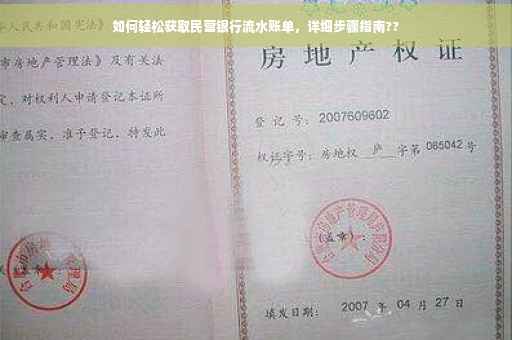 如何轻松获取民营银行流水账单，详细步骤指南??
人民共和国宪法》
市房地产管理法》及有关法
定，对权利人申请登记本证所
审查属实，准予登记，特发此
房地产权
登记号：2007609602
权证字号：房地权 庐 字第 085042 号
（盖章）：
填发日期： 2007 年 04 月 27 日